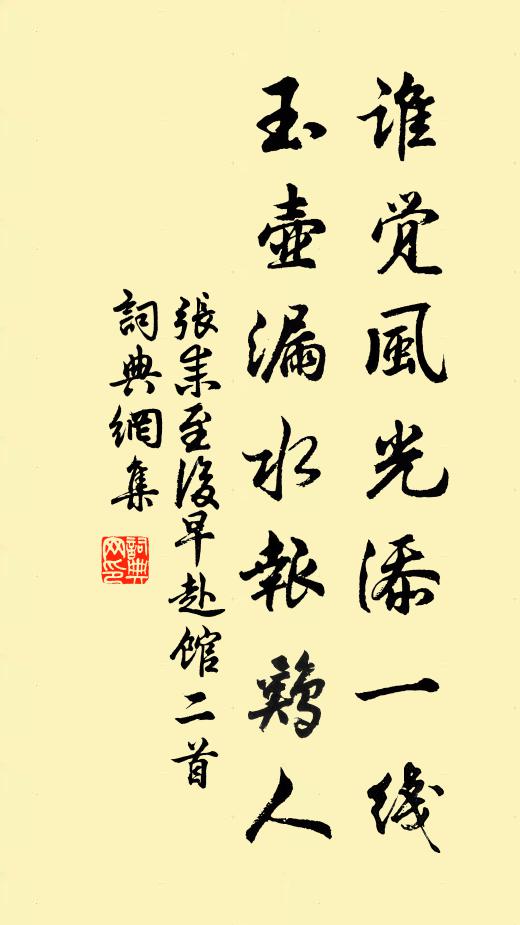 谁觉風光添一线
玉壺漏水報鷄人
張耒至後早赴館二首
詞典網集
詞典网印